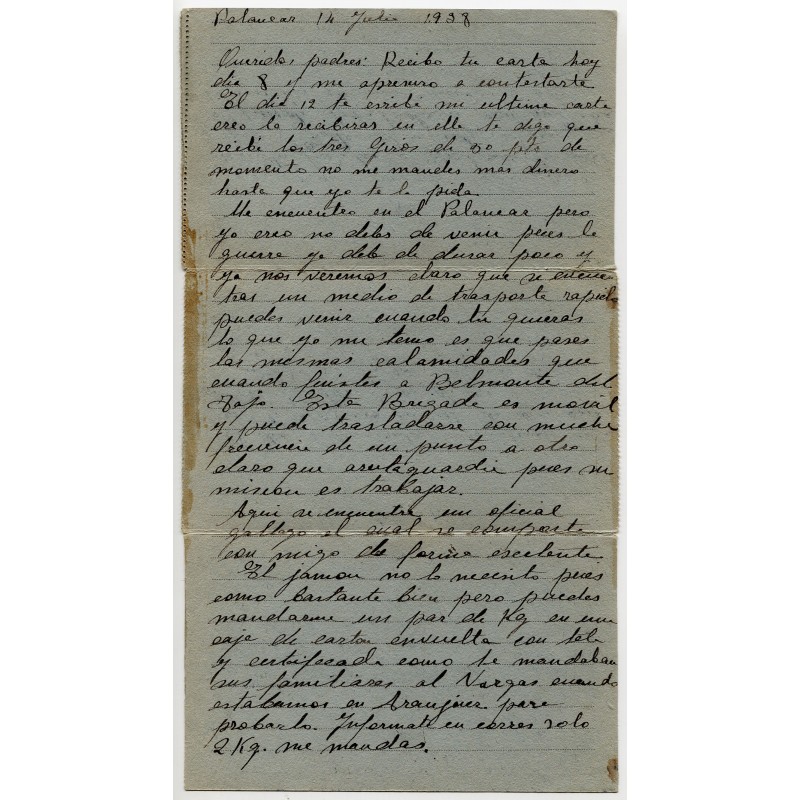 Palancar 14 Julio 1938
Queridos padres: Recibo tu carta hoy
dia 8 y me apresuro a contestarte
El dia 12 te escribi mi ultima carta
creo la recibiras en ella te digo que
recibi los tres Giros de 50 pts de
momento no me mandes mas dinero
hasta que yo te lo pida
Me encuentro en el Palancar pero
yo creo no debes de venir pues la
guerra ya debe de durar poco y
ya nos veremos claro que si encuen
tras un medio de trasporte rapido
puedes venir cuando tu quieras
lo que yo me temo es que pases
las mismas calamidades que
cuando fuistes a Belmonte del
Tajo. Esta Brigada es movil
y puede trasladarse con mucha
frecuencia de un punto a otro
claro que a retaguardia pues su
mision es trabajar.
Aqui se encuentra un oficial
gallego el cual se comporta
con migo de forma escelente
El jamon no lo necisito pues
como bastante bien pero puedes
mandarme un par de Kg en una
caja de carton envuelta con tela
y certificada como le mandaban
sus familiares al Vargas cuando
estabamos en Aranjuez para
probarlo. Informate en correos solo
2 Kg. me mandas.